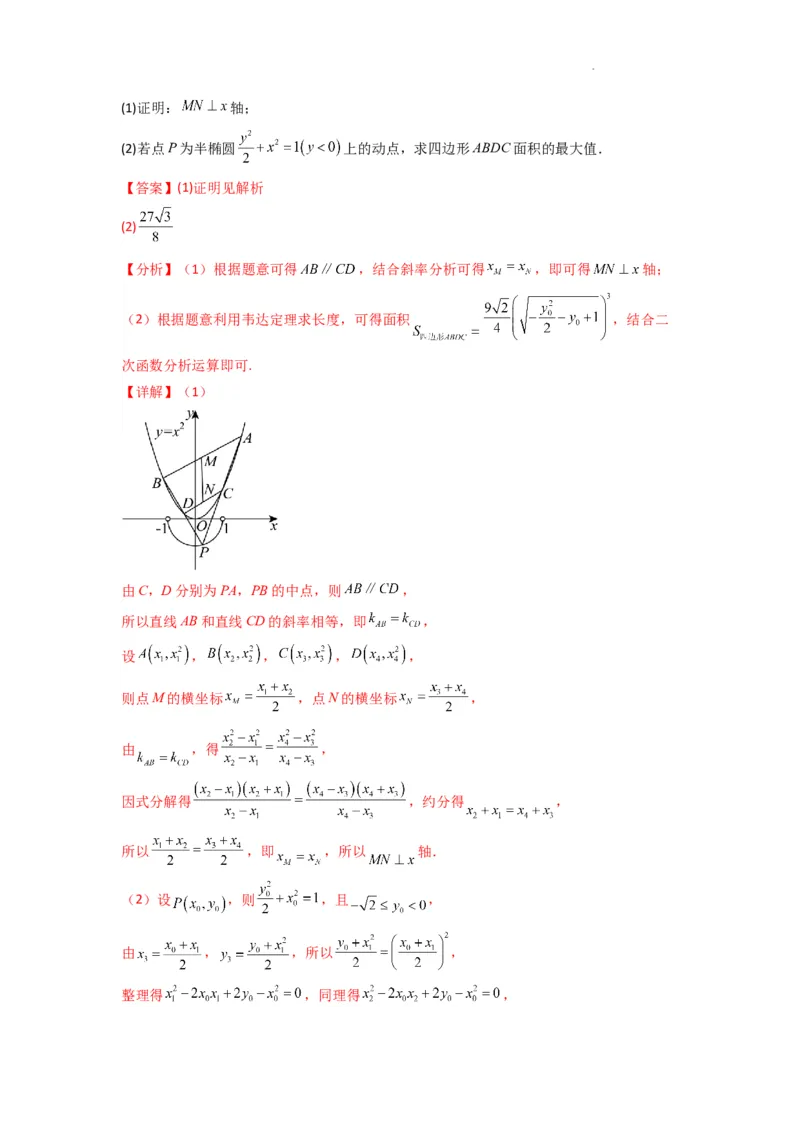 (1)证明：MN ⊥ x轴；
(2)若点P为半椭圆 y²/2 + x² = 1(y < 0)上的动点，求四边形ABDC面积的最大值．
【答案】(1)证明见解析
(2) 27√3/8
【分析】（1）根据题意可得AB // CD，结合斜率分析可得x_M = x_N，即可得MN ⊥ x轴；
（2）根据题意利用韦达定理求长度，可得面积S_四边形ABDC = 9√2/4 (√(-y₀²/2 - y₀ + 1))³，结合二
次函数分析运算即可.
【详解】（1）
y
y=x²
A
M
B
N
C
D
-1
O
1
x
P
由C，D分别为PA，PB的中点，则AB // CD，
所以直线AB和直线CD的斜率相等，即k_AB = k_CD，
设A(x₁,x₁²)，B(x₂,x₂²)，C(x₃,x₃²)，D(x₄,x₄²)，
则点M的横坐标x_M = (x₁+x₂)/2，点N的横坐标x_N = (x₃+x₄)/2，
由k_AB = k_CD，得(x₂²-x₁²)/(x₂-x₁) = (x₄²-x₃²)/(x₄-x₃)，
因式分解得(x₂-x₁)(x₂+x₁)/(x₂-x₁) = (x₄-x₃)(x₄+x₃)/(x₄-x₃)，约分得x₂+x₁=x₄+x₃，
所以(x₁+x₂)/2 = (x₃+x₄)/2，即x_M = x_N，所以MN ⊥ x轴．
（2）设P(x₀,y₀)，则y₀²/2 + x₀² = 1，且-√2 ≤ y₀ < 0，
由x₃ = (x₀+x₁)/2，y₃ = (y₀+x₁²)/2，所以(y₀+x₁²)/2 = ((x₀+x₁)/2)²，
整理得x₁²-2x₀x₁+2y₀-x₀²=0，同理得x₂²-2x₀x₂+2y₀-x₀²=0，